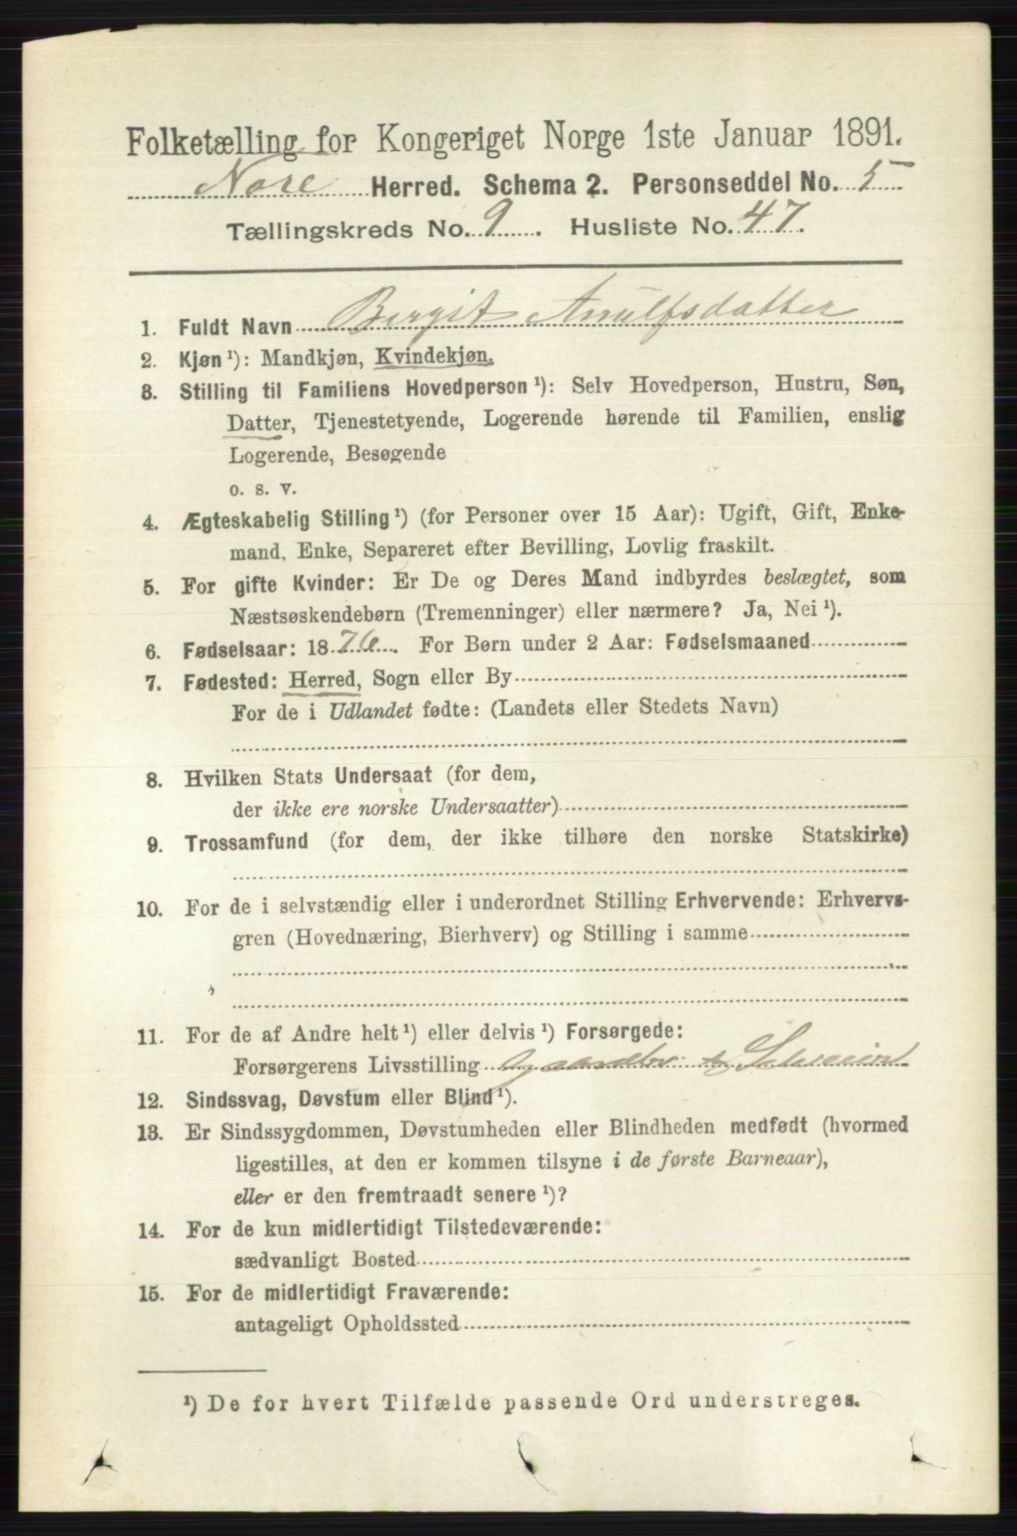 Folketælling for Kongeriget Norge 1ste Januar 1891.
Nore Herred. Schema 2. Personseddel No. 5
Tællingskreds No. 9. Husliste No. 47.
1. Fuldt Navn Birgit Arnulfsdatter
2. Kjøn ¹): Mandkjøn, Kvindekjøn.
3. Stilling til Familiens Hovedperson ¹): Selv Hovedperson, Hustru, Søn,
Datter, Tjenestetyende, Logerende hørende til Familien, enslig
Logerende, Besøgende
o. s. v.
4. Ægteskabelig Stilling ¹) (for Personer over 15 Aar): Ugift, Gift, Enke-
mand, Enke, Separeret efter Bevilling, Lovlig fraskilt.
5. For gifte Kvinder: Er De og Deres Mand indbyrdes beslægtet, som
Næstsøskendebørn (Tremenninger) eller nærmere? Ja, Nei ¹).
6. Fødselsaar: 1876. For Børn under 2 Aar: Fødselsmaaned
7. Fødested: Herred, Sogn eller By
For de i Udlandet fødte: (Landets eller Stedets Navn)
8. Hvilken Stats Undersaat (for dem,
der ikke ere norske Undersaatter)
9. Trossamfund (for dem, der ikke tilhøre den norske Statskirke)
10. For de i selvstændig eller i underordnet Stilling Erhvervende: Erhvervs-
gren (Hovednæring, Bierhverv) og Stilling i samme
11. For de af Andre helt ¹) eller delvis ¹) Forsørgede:
Forsørgerens Livsstilling
12. Sindssvag, Døvstum eller Blind ¹).
13. Er Sindssygdommen, Døvstumheden eller Blindheden medfødt (hvormed
ligestilles, at den er kommen tilsyne i de første Barneaar),
eller er den fremtraadt senere ¹)?
14. For de kun midlertidigt Tilstedeværende:
sædvanligt Bosted
15. For de midlertidigt Fraværende:
antageligt Opholdssted
¹) De for hvert Tilfælde passende Ord understreges.